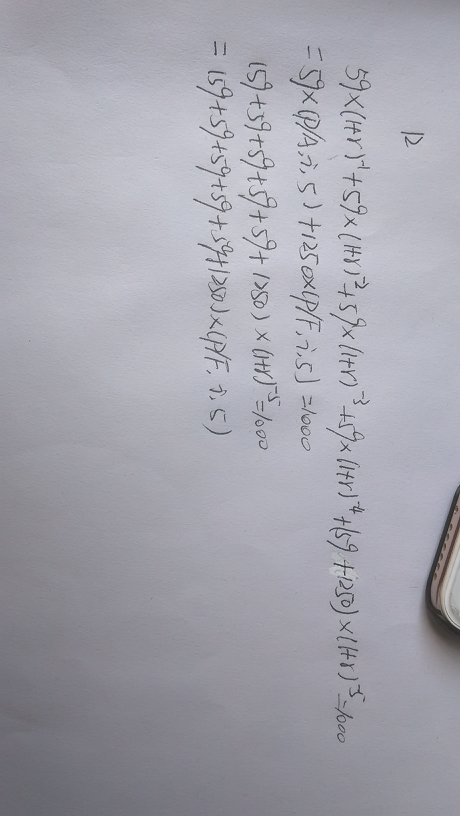 12
59×(1+r)⁻¹+59×(1+r)⁻²+59×(1+r)⁻³+59×(1+r)⁻⁴+(59+1250)×(1+r)⁻⁵=1000
=59×(P/A,i,5)+1250×(P/F,i,5)=1000
(59+59+59+59+59+1250)×(1+r)⁻⁵=1000
=(59+59+59+59+59+1250)×(P/F,i,5)